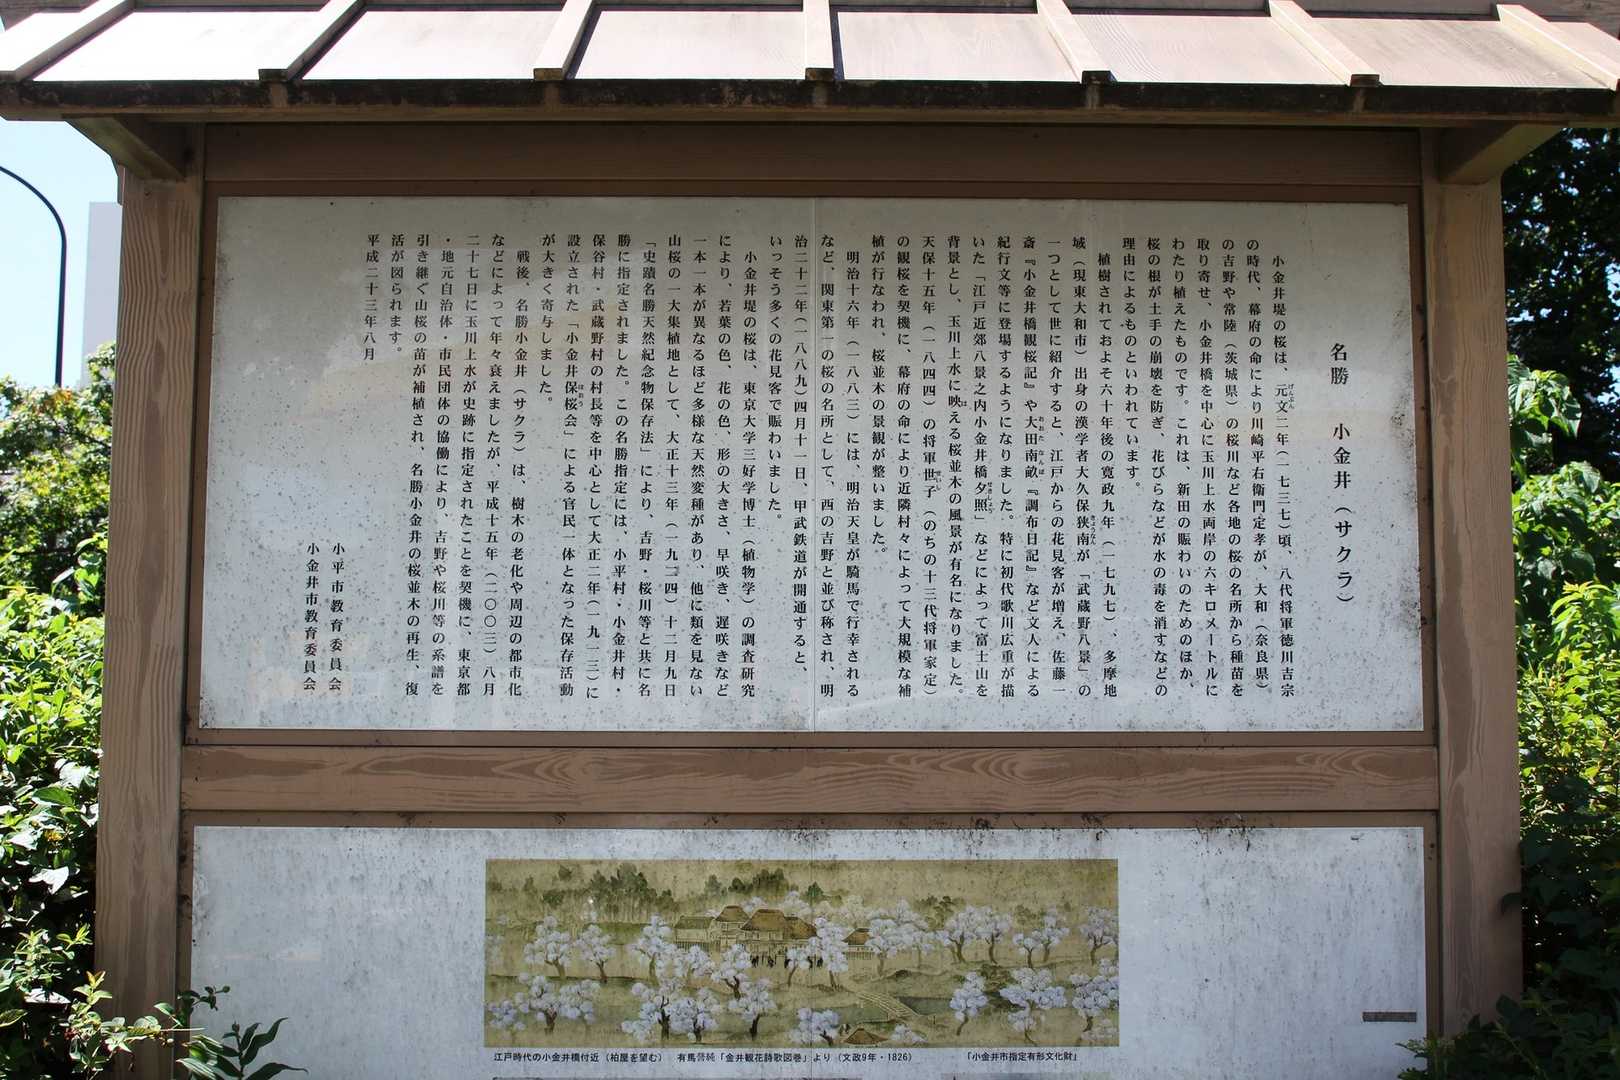 名勝 小金井（サクラ）
小金井堤の桜は、元文二年（一七三七）頃、八代将軍徳川吉宗
の時代、幕府の命により川崎平右衛門定孝が、大和（奈良県）
の吉野や常陸（茨城県）の桜川など各地の桜の名所から種苗を
取り寄せ、小金井橋を中心に玉川上水両岸の六キロメートルに
わたり植えたものです。これは、新田の賑わいのためのほか、
桜の根が土手の崩壊を防ぎ、花びらなどが水の毒を消すなどの
理由によるものといわれています。
植樹されておよそ六十年後の寛政九年（一七九七）、多摩地
域（現東大和市）出身の漢学者大久保狭南が「武蔵野八景」の
一つとして世に紹介すると、江戸からの花見客が増え、佐藤一
斎『小金井橋観桜記』や大田南畝『調布日記』など文人による
紀行文等に登場するようになりました。特に初代歌川広重が描
いた「江戸近郊八景之内小金井橋夕照」などによって富士山を
背景とし、玉川上水に映える桜並木の風景が有名になりました。
天保十五年（一八四四）の将軍世子（のちの十三代将軍家定）
の観桜を契機に、幕府の命により近隣村々によって大規模な補
植が行なわれ、桜並木の景観が整いました。
明治十六年（一八八三）には、明治天皇が騎馬で行幸される
など、関東第一の桜の名所として、西の吉野と並び称され、明
治二十二年（一八八九）四月十一日、甲武鉄道が開通すると、
いっそう多くの花見客で賑わいました。
小金井堤の桜は、東京大学三好学博士（植物学）の調査研究
により、若葉の色、花の色、形の大きさ、早咲き、遅咲きなど
一本一本が異なるほど多様な天然変種があり、他に類を見ない
山桜の一大集植地として、大正十三年（一九二四）十二月九日
「史蹟名勝天然紀念物保存法」により、吉野・桜川等と共に名
勝に指定されました。この名勝指定には、小平村・小金井村・
保谷村・武蔵野村の村長等を中心として大正二年（一九一三）に
設立された「小金井保桜会」による官民一体となった保存活動
が大きく寄与しました。
戦後、名勝小金井（サクラ）は、樹木の老化や周辺の都市化
などによって年々衰えましたが、平成十五年（二〇〇三）八月
二十七日に玉川上水が史跡に指定されたことを契機に、東京都
・地元自治体・市民団体の協働により、吉野や桜川等の系譜を
引き継ぐ山桜の苗が補植され、名勝小金井の桜並木の再生、復
活が図られます。
平成二十三年八月
小平市教育委員会
小金井市教育委員会
江戸時代の小金井橋付近（柏屋を望む） 有馬誉純「金井観花詩歌図巻」より（文政9年・1826） 「小金井市指定有形文化財」